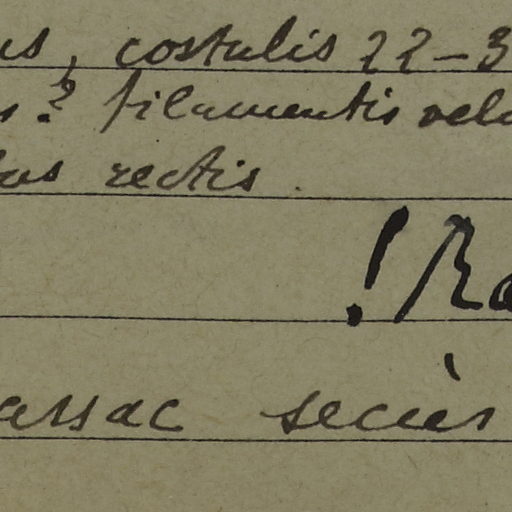 us, costulis 22-3
? filamentis velu
bus rectis.
! Ra
assac secus